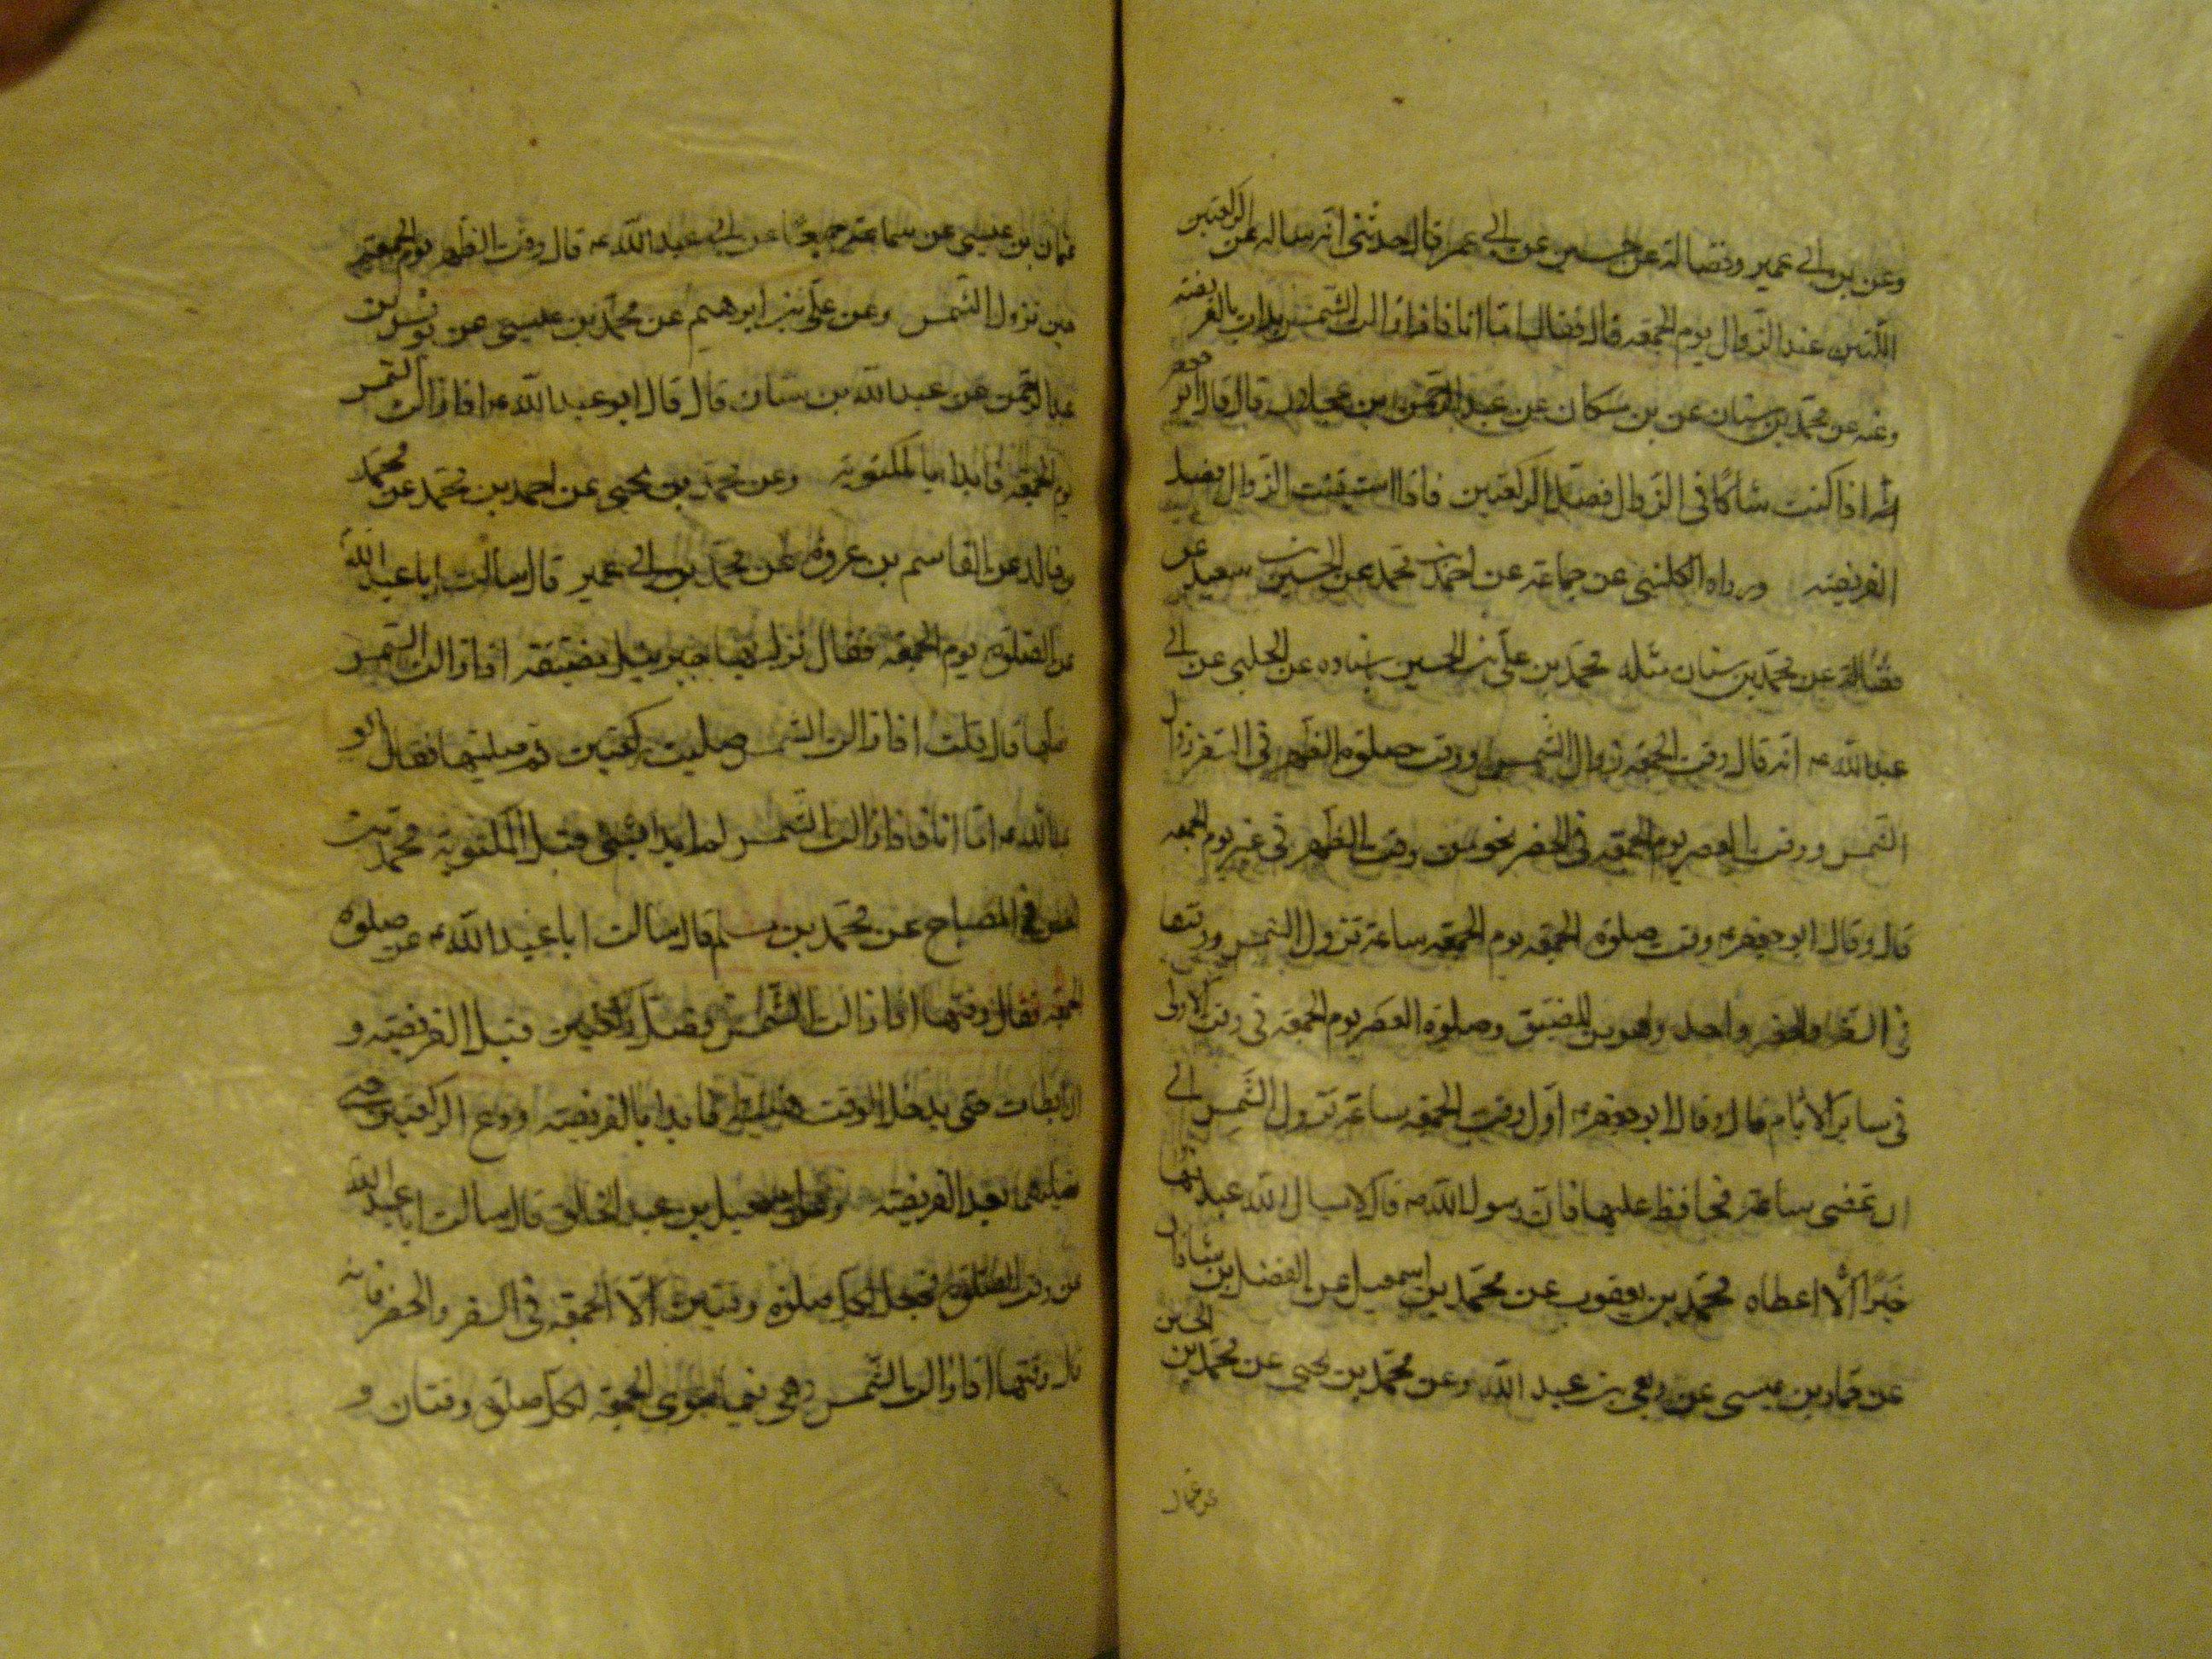 وعن بن ابي عمير وفضالة عن حسين عن ابي عمر قال حدثني انه ساله عن الركعتين
اللتين عند الزوال يوم الجمعه قال فقال اما انا فاذا زالت الشمس بدات بالفريضه
وعنه عن محمد بن سنان عن بن مسكان عن عبد الرحمن بن عجلان قال قال ابو جعفر
اذا كنت شاكا في الزوال فصل الركعتين فاذا استيقنت الزوال فصل
الفريضه ورواه الكليني عن جماعة عن احمد بن محمد عن الحسين بن سعيد عن
فضالة عن محمد بن سنان مثله محمد بن علي بن الحسين باسناده عن الحلبي عن ابي
عبد الله ع انه قال وقت الجمعه زوال الشمس ووقت صلوة الظهر في السفر زوال
الشمس ووقت العصر يوم الجمعه في الحضر نحو من وقت الظهر في غير يوم الجمعه
قال وقال ابو جعفر ع وقت صلوة الجمعه يوم الجمعه ساعة تزول الشمس ووقتها
في السفر والحضر واحد وهو من المضيق وصلوة العصر يوم الجمعه في وقت الاولى
في ساير الايام قال وقال ابو جعفر ع اول وقت الجمعه ساعة تزول الشمس الى
ان تمضى ساعة فحافظ عليها فان رسول الله ص قال لا يسال الله عبد فيها
خيرا الا اعطاه محمد بن يعقوب عن محمد بن اسمعيل عن الفضل بن شاذان
عن حماد بن عيسى عن ربعي بن عبد الله وعن محمد بن يحيى عن محمد بن الحسين
عن عثمان
عثمان بن عيسى عن سماعة جميعا عن ابي عبد الله ع قال وقت الظهر يوم الجمعه
حين تزول الشمس وعن علي بن ابرهيم عن محمد بن عيسى عن يونس بن
عبد الرحمن عن عبد الله بن سنان قال قال ابو عبد الله ع اذا زالت الشمس
يوم الجمعه فابدا بالمكتوبة وعن محمد بن يحيى عن احمد بن محمد عن محمد
بن خالد عن القاسم بن عروة عن محمد بن ابي عمير قال سالت ابا عبد الله
عن الصلوة يوم الجمعه فقال نزل بها جبرئيل مضيقة اذا زالت الشمس
فصلها قال قلت اذا زالت الشمس صليت ركعتين ثم صليتها فقال ابو
عبد الله ع اما انا فاذا زالت الشمس لم ابدا بشئ قبل المكتوبة محمد بن
الحسن في المصباح عن محمد بن مسلم قال سالت ابا عبد الله ع عن صلوة
الجمعه فقال وقتها اذا زالت الشمس فصل ركعتين قبل الفريضه و
ان ابطات حتى يدخل الوقت هنيئة فابدا بالفريضه ودع الركعتين حتى
تصليهما بعد الفريضه وعن اسمعيل بن عبد الخالق قال سالت ابا عبد الله
عن وقت الصلوة فجعل لكل صلوة وقتين الا الجمعه في السفر والحضر فانه
قال وقتها اذا زالت الشمس وهي فيما سوى الجمعه لكل صلوة وقتان و